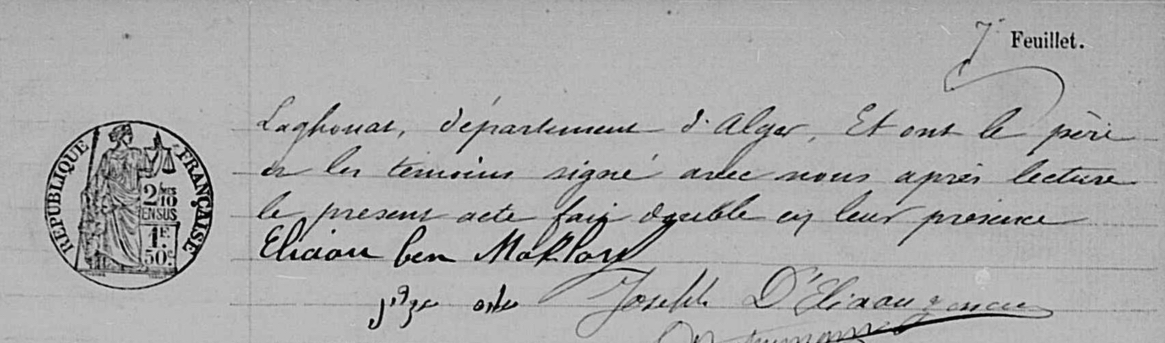 7
Feuillet.
RÉPUBLIQUE FRANÇAISE
2/10
EN SUS
1F
50c
Laghouat, département d'Alger, Et ont le père
et les témoins signé avec nous après lecture
le present acte fait double en leur présence
Eliaou ben
Joseph D'Eliaou